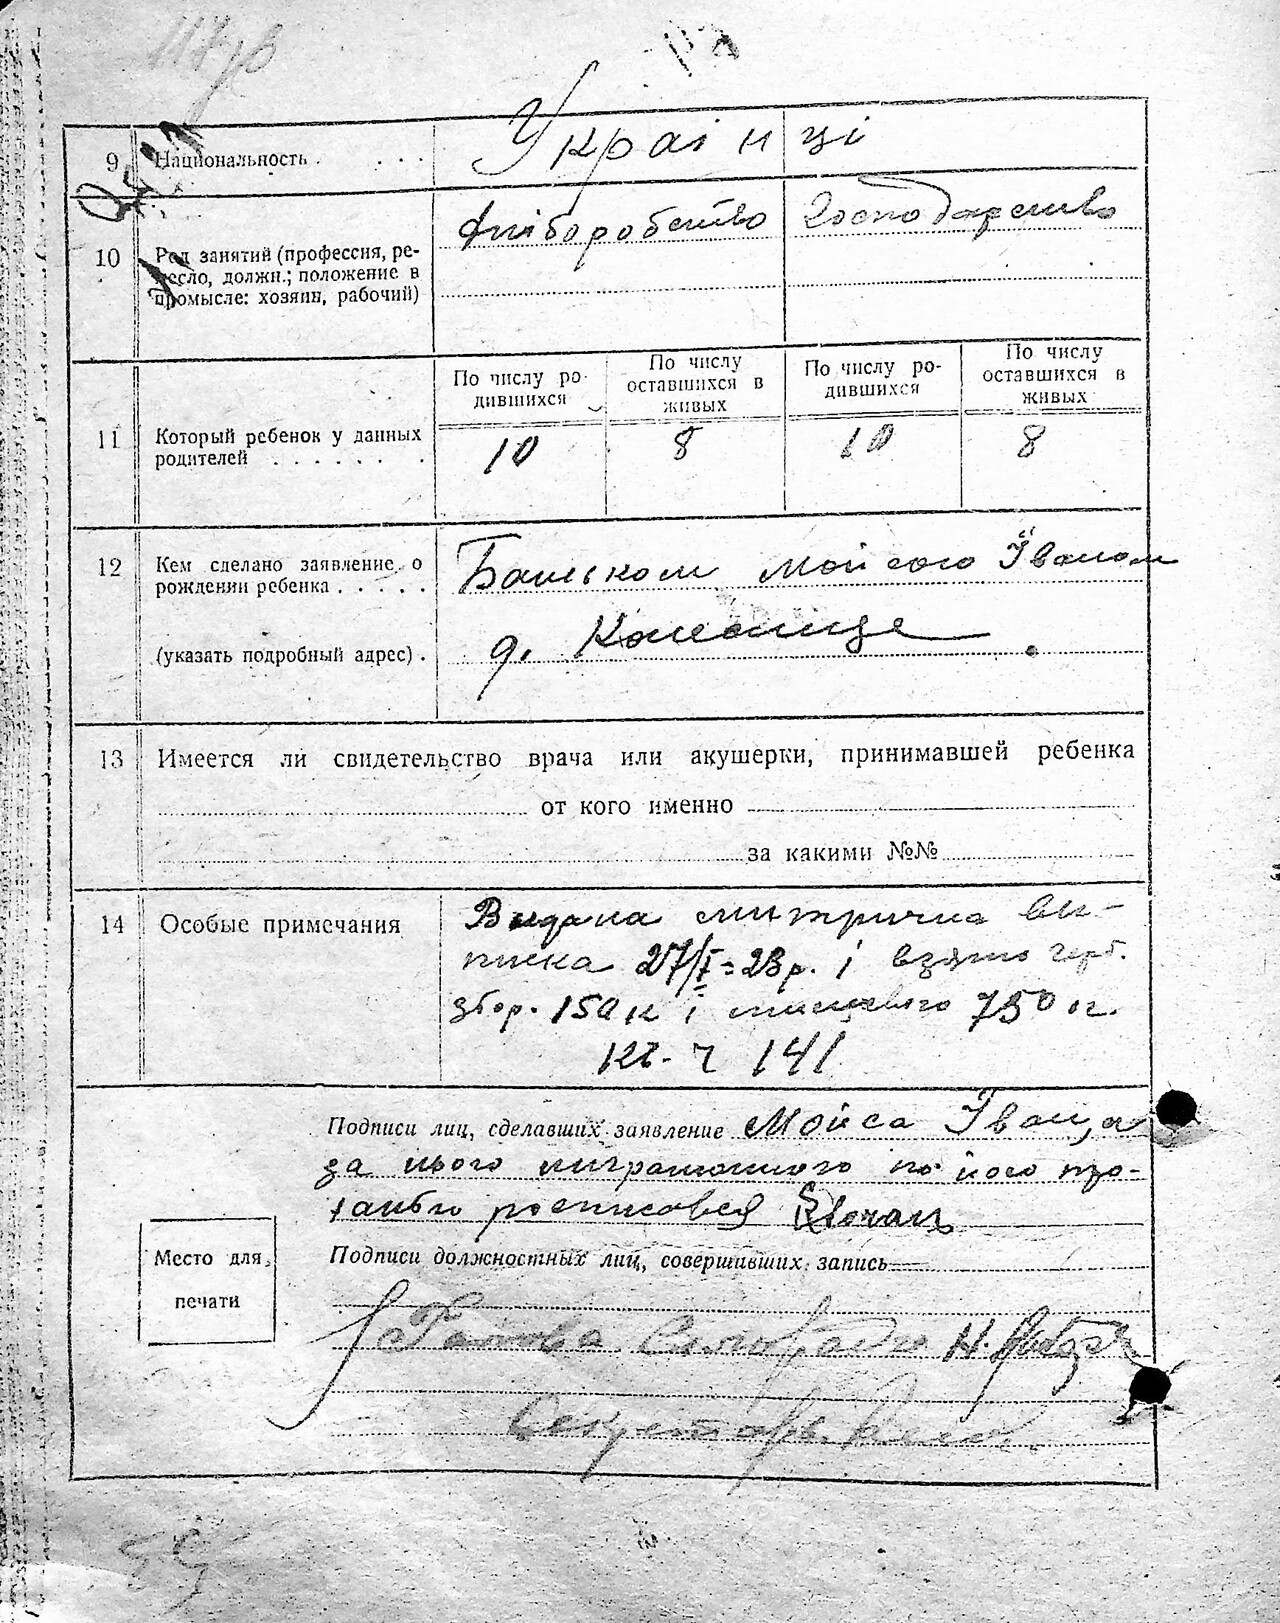 9 Национальность . . . . Українці
10 Род занятий (профессия, ре-
месло, должн.; положение в
промысле: хозяин, рабочий)
хліборобство господарство
11 Который ребенок у данных
родителей . . . . . . .
По числу ро-
дившихся
По числу
оставшихся в
живых
По числу ро-
дившихся
По числу
оставшихся в
живых
10 8 10 8
12 Кем сделано заявление о
рождении ребенка . . . . .
Батьком Мойсою Іваном
(указать подробный адрес) .
д.
13 Имеется ли свидетельство врача или акушерки, принимавшей ребенка
от кого именно
за какими №№
14 Особые примечания
Видана митрична ви-
писка 27/I-23р. і взято герб.
збор. 150 к і місцевого 750 к.
кв. ч 141
Подписи лиц, сделавших заявление Мойса Іван, а
за нього неграмотного по його про-
роспи́совся
Место для
печати
Подписи должностных лиц, совершивших запись
Голова
Секретарь